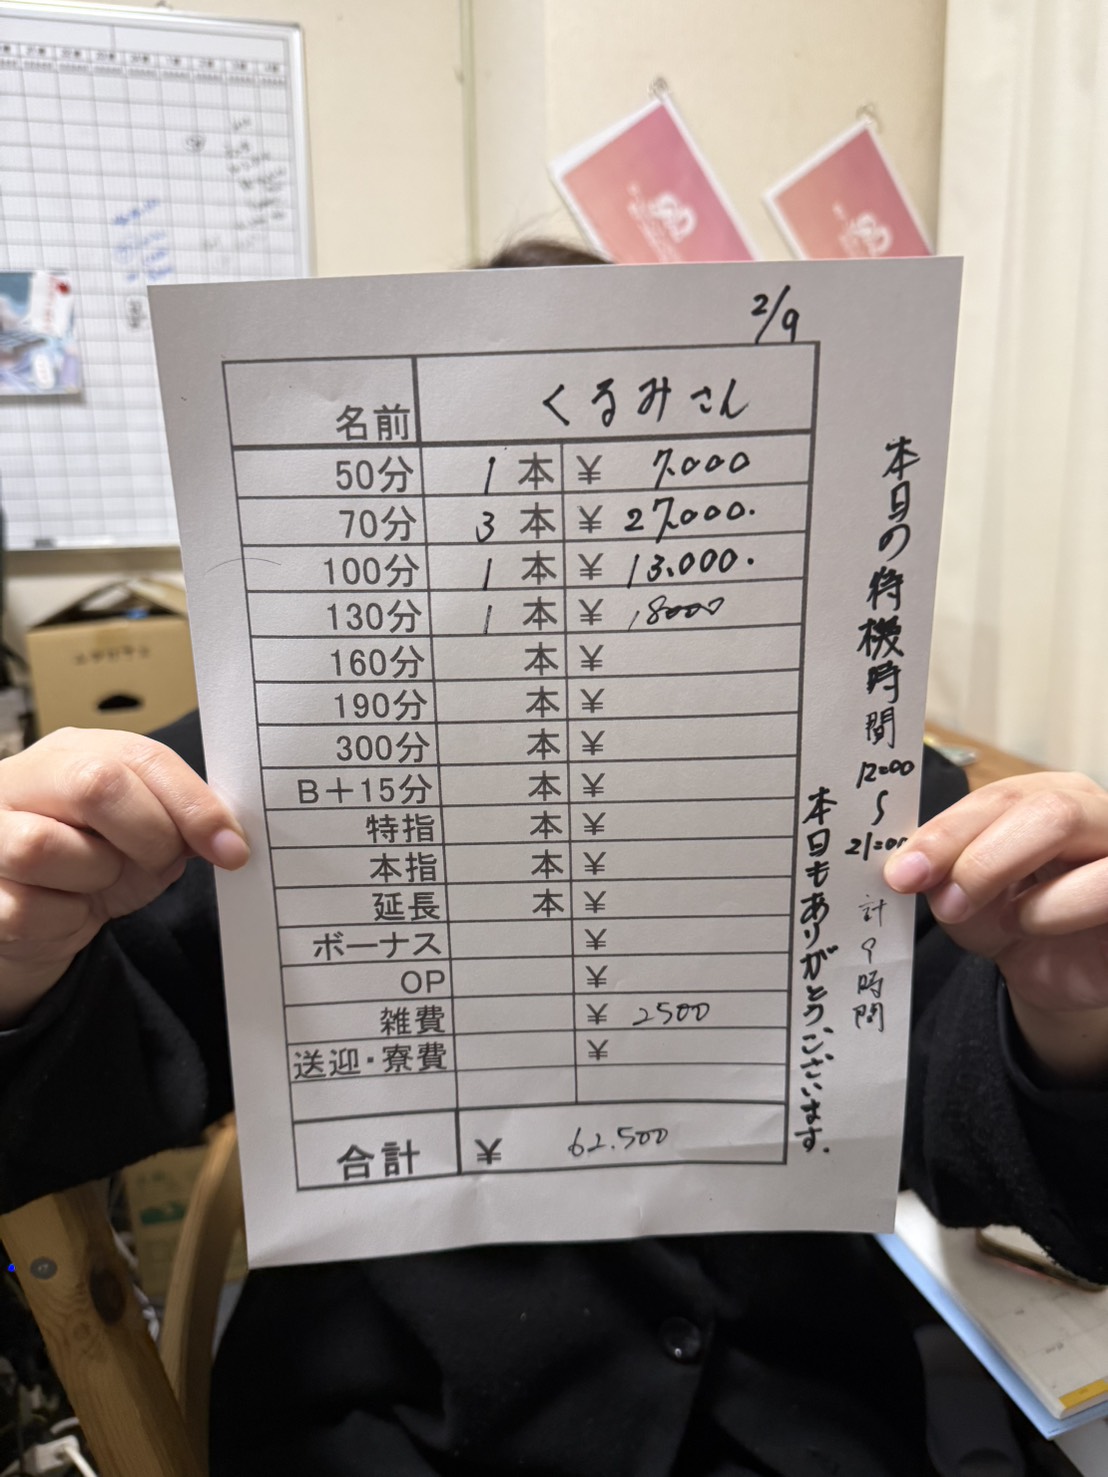 2/9
名前 くるみさん
50分 1 本 ¥ 7.000
70分 3 本 ¥ 27.000.
100分 1 本 ¥ 13.000.
130分 1 本 ¥ 18000
160分 本 ¥
190分 本 ¥
300分 本 ¥
B+15分 本 ¥
特指 本 ¥
本指 本 ¥
延長 本 ¥
ボーナス ¥
OP ¥
雑費 ¥ 2500
送迎・寮費 ¥
合計 ¥ 62.500
本日の待機時間 12:00 〜 21:00 計9時間
本日もありがとうございます.